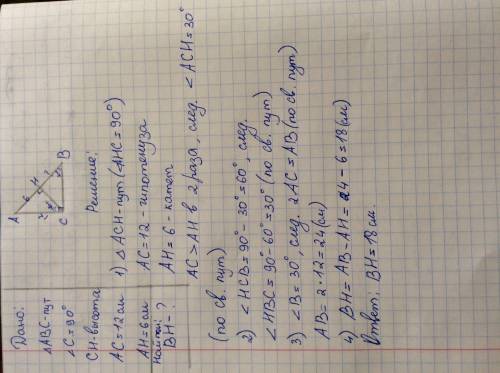 Дано:
△ABC-пут
∠C=90°
CH-высота
AC=12см
AH=6см
Найти:
BH-?
A
6
H
B
C
Решение:
1) △ACH-пут (∠AHC=90°)
AC=12 - гипотенуза
AH=6 - катет
AC>AH в 2 раза, след. ∠ACH=30°
(по св. пут)
2) ∠HCB=90°-30°=60°, след.
∠HBC=90°-60°=30° (по св. пут)
3) ∠B=30°, след. 2AC=AB (по св. пут)
AB=2·12=24(см)
4) BH=AB-AH=24-6=18(см)
Ответ: BH=18см.